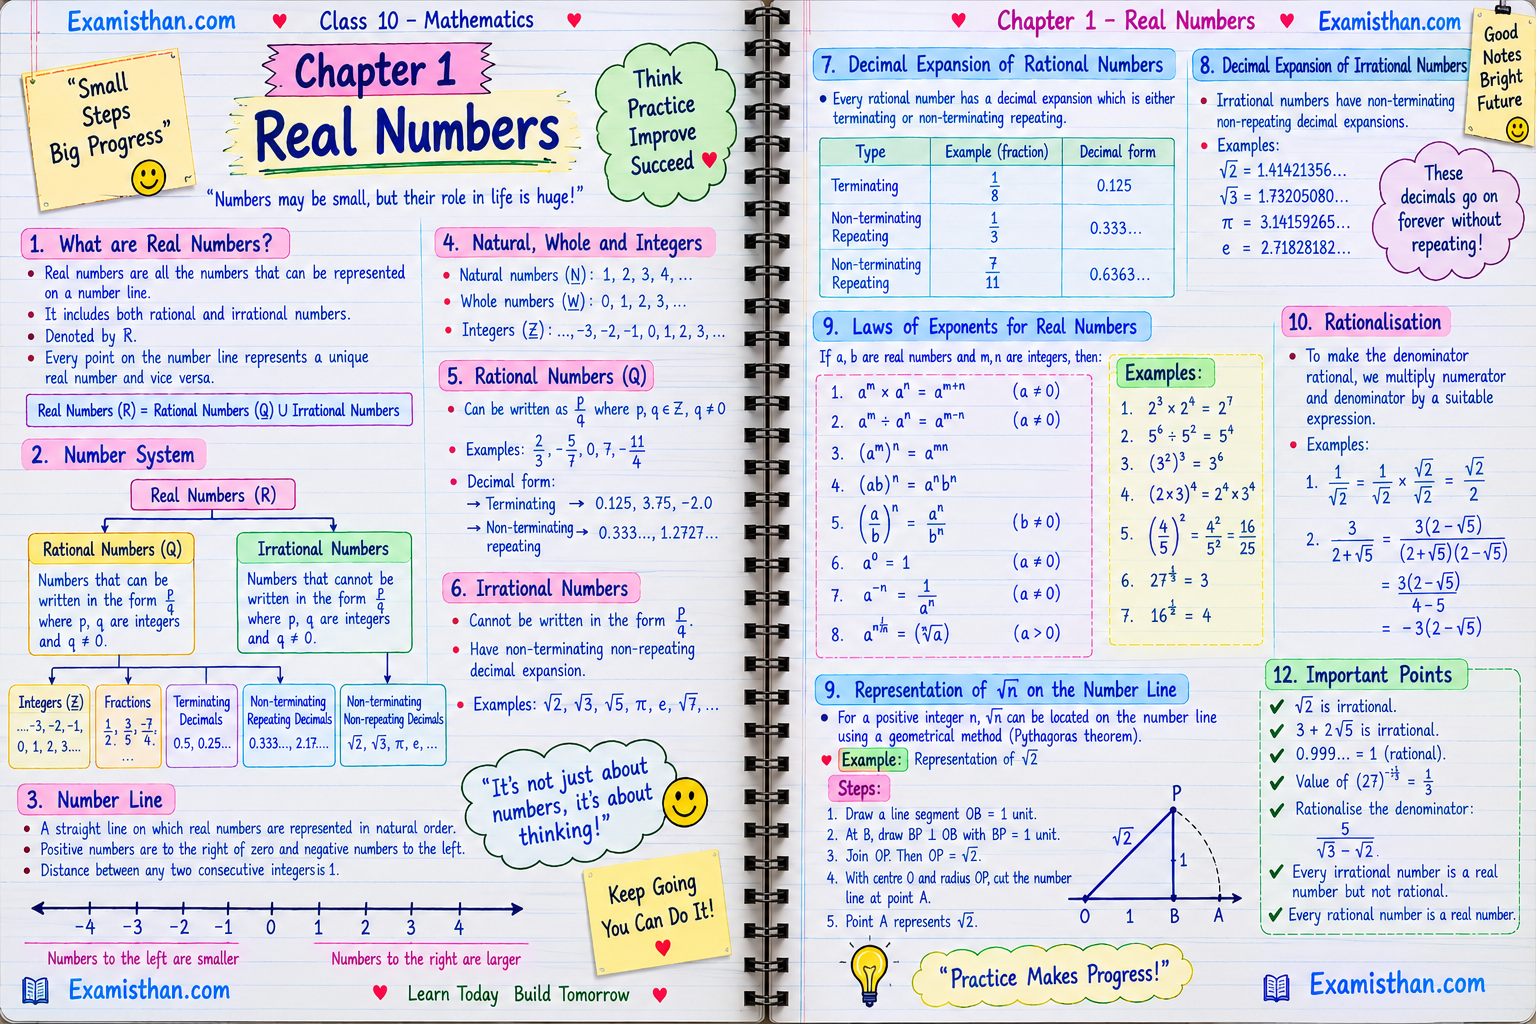 Examisthan.com ♥ Class 10 – Mathematics ♥
"Small
Steps
Big Progress"
Chapter 1
Real Numbers
"Numbers may be small, but their role in life is huge!"
Think
Practice
Improve
Succeed ♥
1. What are Real Numbers?
• Real numbers are all the numbers that can be represented
on a number line.
• It includes both rational and irrational numbers.
• Denoted by R.
• Every point on the number line represents a unique
real number and vice versa.
Real Numbers (R) = Rational Numbers (Q) ∪ Irrational Numbers
2. Number System
Real Numbers (R)
Rational Numbers (Q)
Numbers that can be
written in the form p/q
where p, q are integers
and q ≠ 0.
Irrational Numbers
Numbers that cannot be
written in the form p/q
where p, q are integers
and q ≠ 0.
Integers (Z)
....-3, -2, -1,
0, 1, 2, 3....
Fractions
1/2. 3/5, -7/4.
...
Terminating
Decimals
0.5, 0.25...
Non-terminating
Repeating Decimals
0.333..., 2.17....
Non-terminating
Non-repeating Decimals
√2, √3, π, e, ...
3. Number Line
• A straight line on which real numbers are represented in natural order.
• Positive numbers are to the right of zero and negative numbers to the left.
• Distance between any two consecutive integers is 1.
-4 -3 -2 -1 0 1 2 3 4
Numbers to the left are smaller
Numbers to the right are larger
Examisthan.com
4. Natural, Whole and Integers
• Natural numbers (N): 1, 2, 3, 4, ...
• Whole numbers (W): 0, 1, 2, 3, ...
• Integers (Z): ..., -3, -2, -1, 0, 1, 2, 3, ...
5. Rational Numbers (Q)
• Can be written as p/q where p, q ∈ Z, q ≠ 0
• Examples: 2/3, -5/7, 0, 7, -11/4
• Decimal form:
→ Terminating → 0.125, 3.75, -2.0
→ Non-terminating → 0.333..., 1.2727...
repeating
6. Irrational Numbers
• Cannot be written in the form p/q.
• Have non-terminating non-repeating
decimal expansion.
• Examples: √2, √3, √5, π, e, √7, ...
"It's not just about
numbers, it's about
thinking!"
Keep Going
You Can Do It!
♥
♥ Learn Today Build Tomorrow ♥
♥ Chapter 1 – Real Numbers ♥ Examisthan.com
Good
Notes
Bright
Future
7. Decimal Expansion of Rational Numbers
• Every rational number has a decimal expansion which is either
terminating or non-terminating repeating.
Type Example (fraction) Decimal form
Terminating 1/8 0.125
Non-terminating
Repeating 1/3 0.333...
Non-terminating
Repeating 7/11 0.6363...
8. Decimal Expansion of Irrational Numbers
• Irrational numbers have non-terminating
non-repeating decimal expansions.
• Examples:
√2 = 1.41421356...
√3 = 1.73205080...
π = 3.14159265...
e = 2.71828182...
These
decimals go on
forever without
repeating!
9. Laws of Exponents for Real Numbers
If a, b are real numbers and m, n are integers, then:
1. a^m × a^n = a^(m+n) (a ≠ 0)
2. a^m ÷ a^n = a^(m-n) (a ≠ 0)
3. (a^m)^n = a^(mn)
4. (ab)^n = a^n b^n
5. (a/b)^n = a^n/b^n (b ≠ 0)
6. a^0 = 1 (a ≠ 0)
7. a^(-n) = 1/a^n (a ≠ 0)
8. (a > 0)
Examples:
1. 2³ × 2⁴ = 2⁷
2. 5⁶ ÷ 5² = 5⁴
3. (3²)³ = 3⁶
4. (2×3)⁴ = 2⁴×3⁴
5. (4/5)² = 4²/5² = 16/25
6. 27^(1/3) = 3
7. 16^(1/2) = 4
10. Rationalisation
• To make the denominator
rational, we multiply numerator
and denominator by a suitable
expression.
• Examples:
1. 1/√2 = 1/√2 × √2/√2 = √2/2
2. 3/(2+√5) = 3(2-√5)/((2+√5)(2-√5))
= 3(2-√5)/(4-5)
= -3(2-√5)
9. Representation of √n on the Number Line
• For a positive integer n, √n can be located on the number line
using a geometrical method (Pythagoras theorem).
♥ Example: Representation of √2
Steps:
1. Draw a line segment OB = 1 unit.
2. At B, draw BP ⊥ OB with BP = 1 unit.
3. Join OP. Then OP = √2.
4. With centre O and radius OP, cut the number
line at point A.
5. Point A represents √2.
P
√2
1
O 1 B A
12. Important Points
✔ √2 is irrational.
✔ 3 + 2√5 is irrational.
✔ 0.999... = 1 (rational).
✔ Value of (27) = 1/3
✔ Rationalise the denominator:
5/(√3 - √2).
✔ Every irrational number is a real
number but not rational.
✔ Every rational number is a real number.
"Practice Makes Progress!"
Examisthan.com